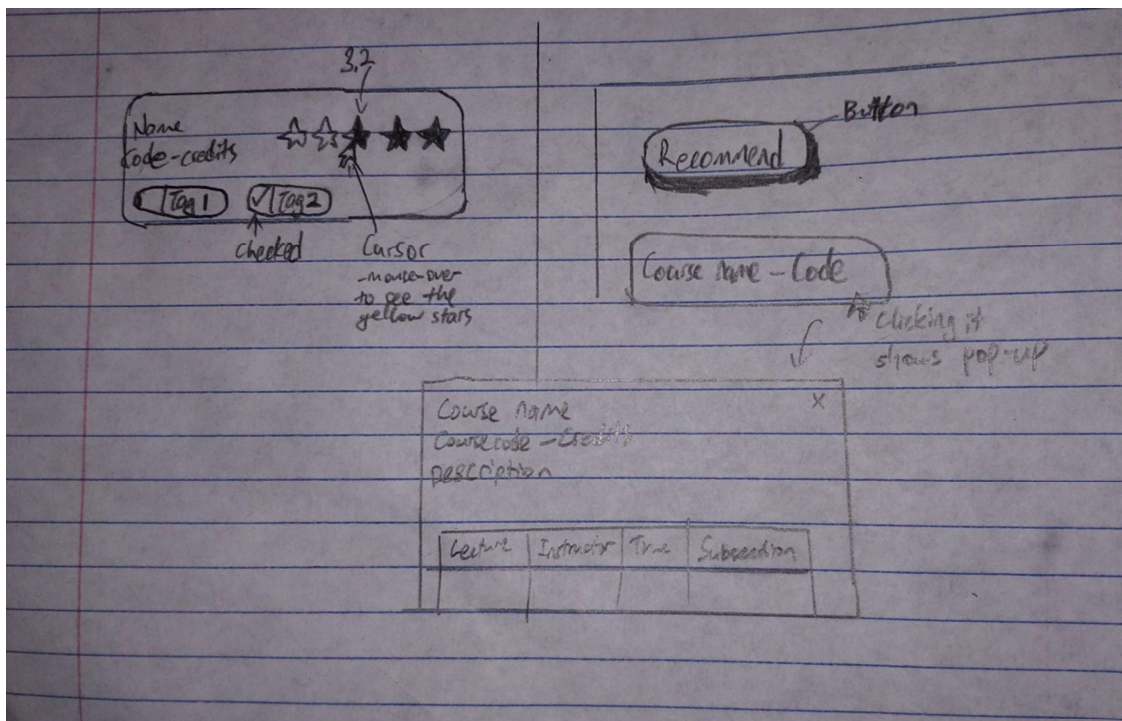 3.2
Name
Code-credits
Tag 1
Tag 2
checked
Cursor
-mouse-over
to see the
yellow stars
Button
Recommend
Course name - Code
Clicking it
shows pop-up
Course name
X
Coursecode - Credits
Description
Lecture Instructor Time Subsection